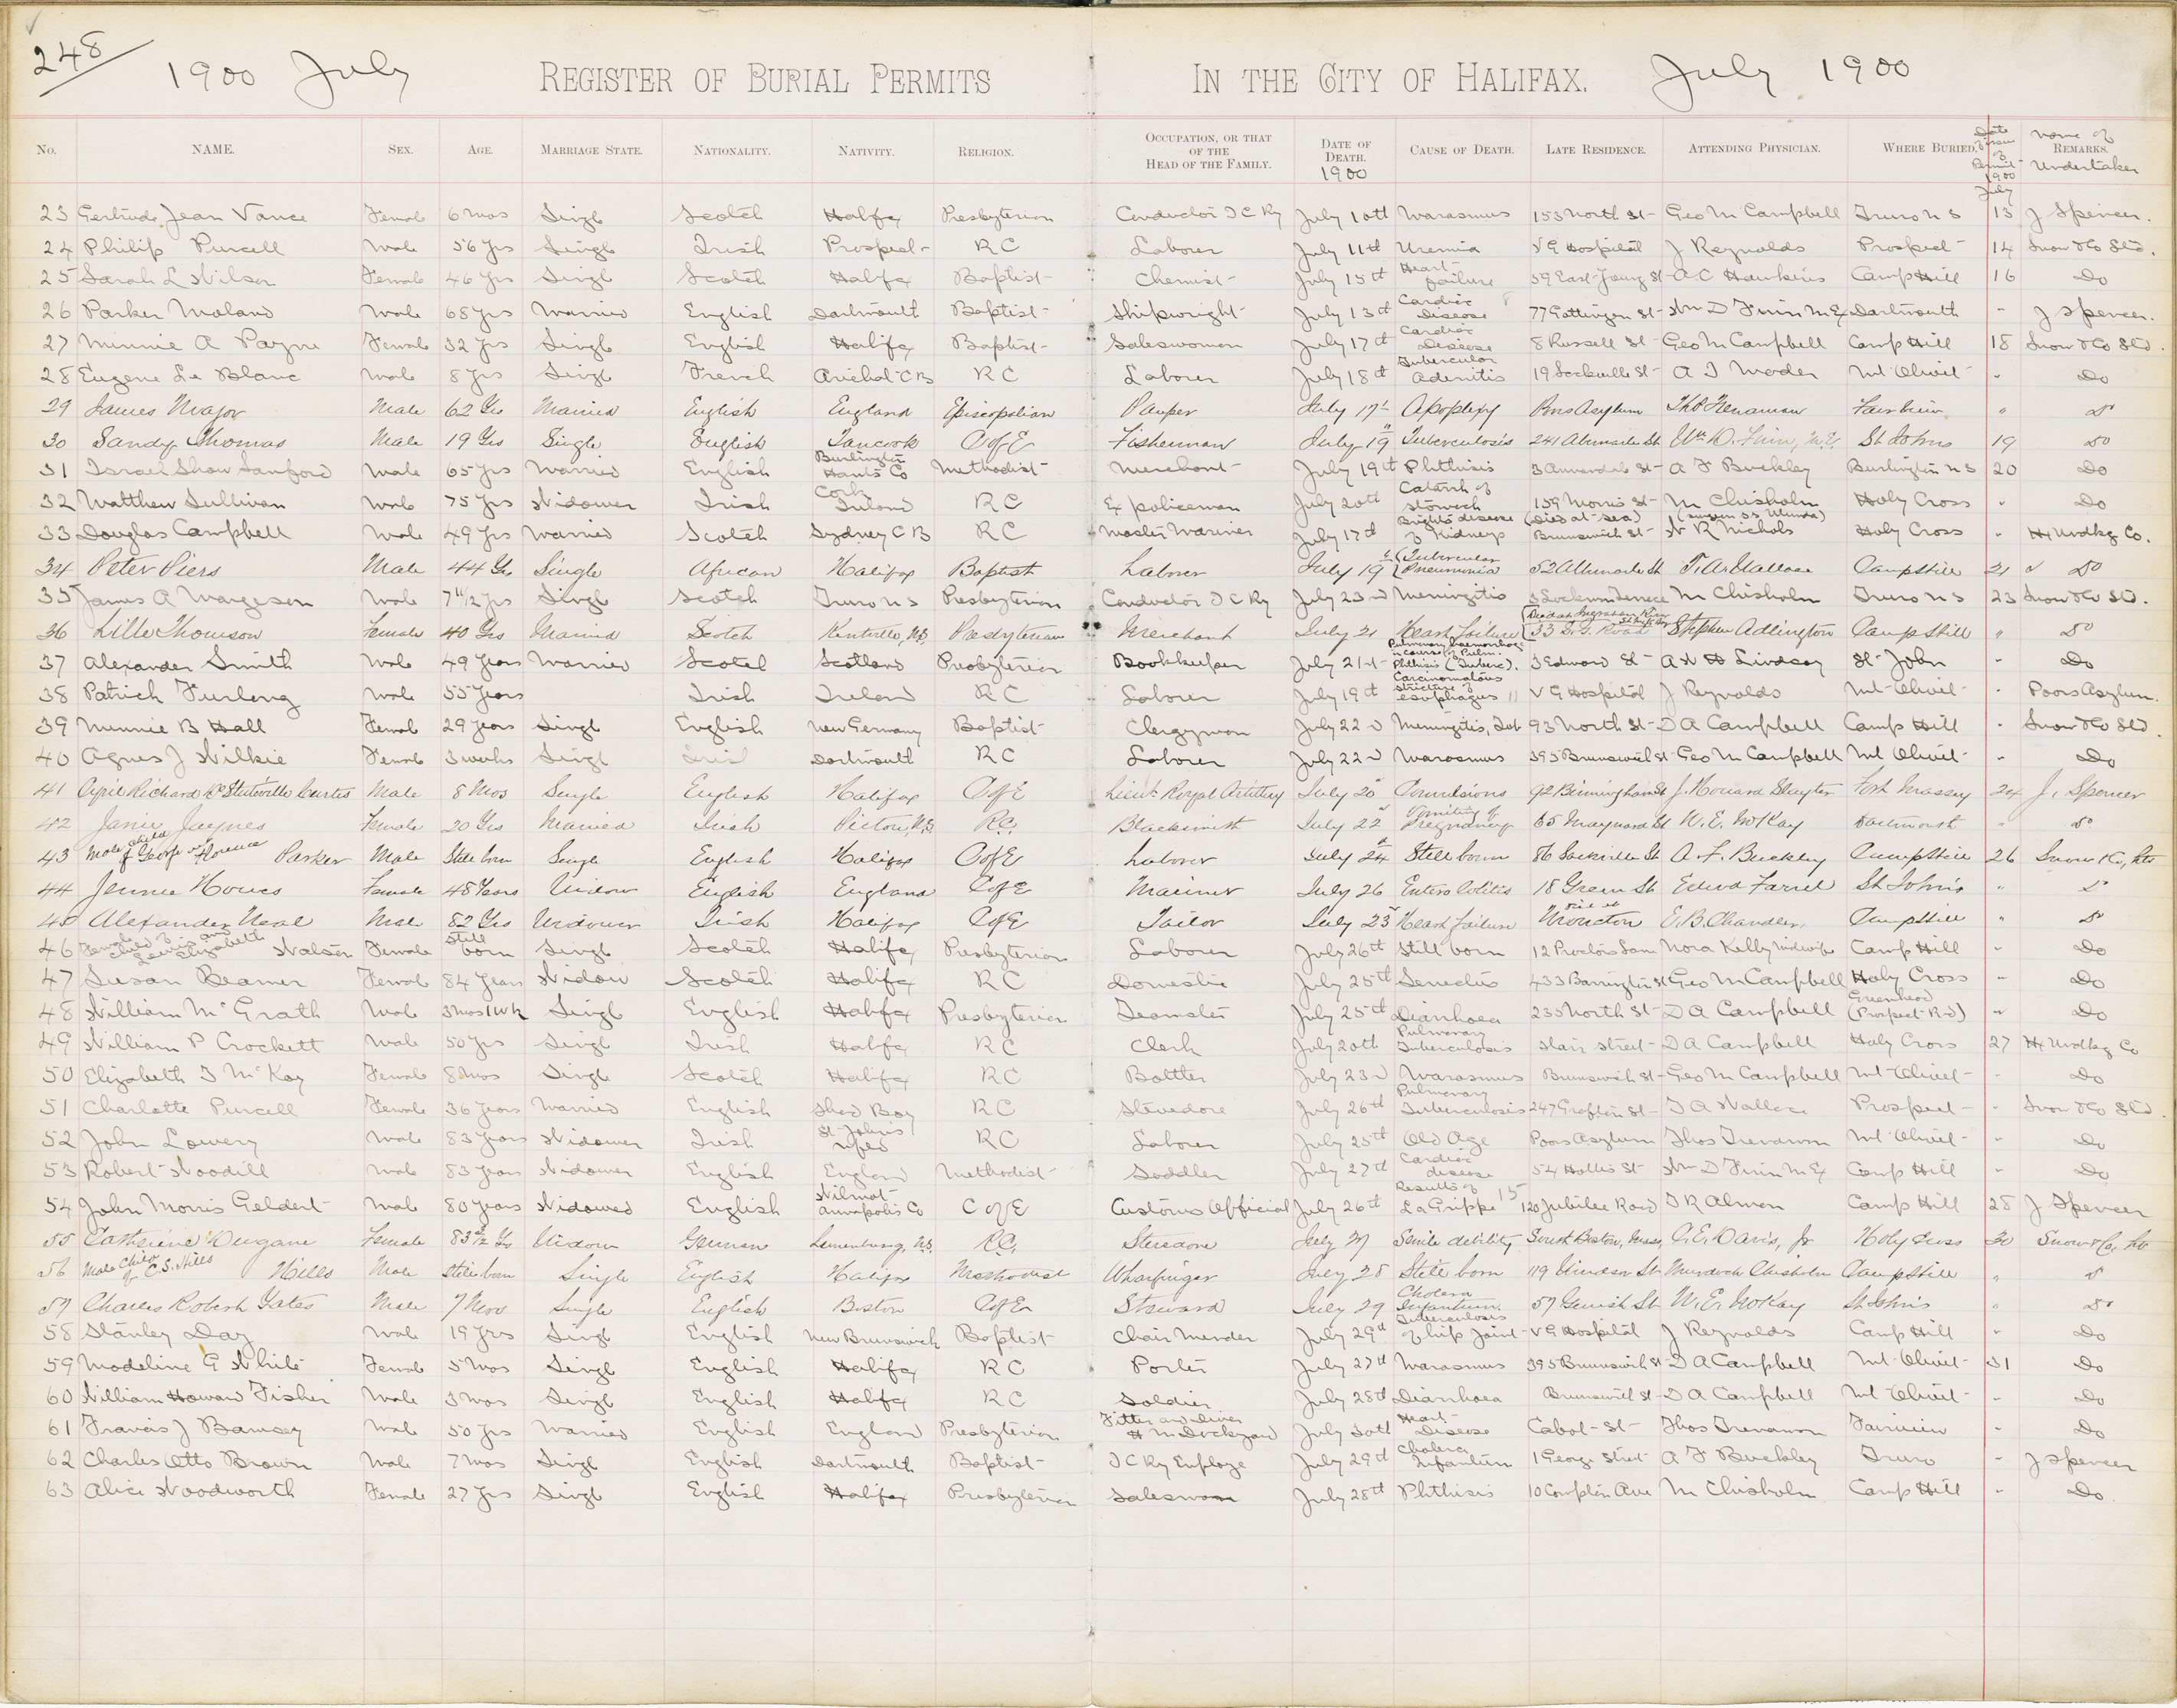 248
1900 July REGISTER OF BURIAL PERMITS IN THE CITY OF HALIFAX. July 1900
No. NAME. SEX. AGE. MARRIAGE STATE. NATIONALITY. NATIVITY. RELIGION. OCCUPATION, OR THAT OF THE HEAD OF THE FAMILY. DATE OF DEATH. 1900 CAUSE OF DEATH. LATE RESIDENCE. ATTENDING PHYSICIAN. WHERE BURIED. Date of Permit 1900 July REMARKS. Name of Undertaker
23 Gertrude Jean Vance Female 6 mos Single Scotch Halifax Presbyterian Conductor I C Ry July 10th Marasmus 153 North St Geo M Campbell Truro N S 13 J Spencer.
24 Philip Purcell Male 56 yrs Single Irish Prospect R C Laborer July 11th Uremia V G Hospital J Reynolds Prospect 14 Snow & Co Ltd.
25 Sarah L Wilson Female 46 yrs Single Scotch Halifax Baptist Chemist July 15th Heart failure 59 East Young St A C Hawkins Camp Hill 16 Do
26 Parker Moland Male 68 yrs Married English Dartmouth Baptist Shipwright July 13th Cardiac Disease 77 Gottingen St Wm D Finn M Ex Dartmouth " J Spencer.
27 Minnie A Payne Female 32 yrs Single English Halifax Baptist Saleswoman July 17th Cardiac Disease 8 Russell St Geo M Campbell Camp Hill 18 Snow & Co Ltd.
28 Eugene Le Blanc Male 8 yrs Single French Arichat C B R C Laborer July 18th Tubercular Adenitis 19 Sackville St A I Mader Mt Olivet " Do
29 James Major Male 62 Yrs Married English England Episcopalian Pauper July 17th Apoplexy Poors Asylum Thos Trenaman Fairview " Do
30 Sandy Thomas Male 19 Yrs Single English Tancook C of E Fisherman July 19th Tuberculosis 241 Albemarle St Wm D. Finn, M.E. St Johns 19 Do
31 Israel Shaw Sanford Male 65 yrs Married English Burlington Hants Co Methodist Merchant July 19th Phthisis 3 Annandale St A F Buckley Burlington N S 20 Do
32 Matthew Sullivan Male 75 yrs Widower Irish Cork Ireland R C Ex policeman July 20th Catarrh of stomach 159 Morris St M Chisholm Holy Cross " Do
33 Douglas Campbell Male 49 yrs Married Scotch Sydney C B R C Master Mariner July 17th Brights disease of Kidneys (Died at sea) Brunswick St (surgeon S.S. Ulunda) W R Nichols Holy Cross " Hx Undtkg Co.
34 Peter Piers Male 44 Yrs Single African Halifax Baptist Laborer July 19th Tubercular Pneumonia 52 Albemarle St F. A. Wallace Camp Hill 21 " Do
35 James A Margeson Male 7 11/12 yrs Single Scotch Truro N S Presbyterian Conductor I C Ry July 23rd Meningitis M Chisholm Truro N S 23 Snow & Co Ltd.
36 Lille Thomson Female 40 Yrs Married Scotch Kentville, N.S. Presbyterian Merchant July 21 Heart failure 33 Road Stephen Adlington Camp Hill " Do
37 Alexander Smith Male 49 Years Married Scotch Scotland Presbyterian Bookkeeper July 21st Pulmonary haemorrhage in course of Pulm. Phthisis (Tuberc). 3 Edward St A W H Lindsay St John " Do
38 Patrick Furlong Male 55 Years Irish Ireland R C Laborer July 19th Carcinomatous stricture of esophagus V G Hospital J Reynolds Mt Olivet " Poors Asylum.
39 Minnie B Hall Female 29 Years Single English New Germany Baptist Clergyman July 22nd Meningitis, Tub 93 North St D A Campbell Camp Hill " Snow & Co Ltd.
40 Agnes J Wilkie Female 3 weeks Single Irish Dartmouth R C Laborer July 22nd Marasmus 395 Brunswick St Geo M Campbell Mt Olivet " Do
41 Cyril Richard De Stuteville Curtis Male 8 Mos Single English Halifax C of E Lieut. Royal Artillery July 20th Convulsions 92 Birmingham St J. Howard Slayter Fort Massey 24 J. Spencer
42 Janie Jaynes Female 20 Yrs Married Irish Pictou, N.S. R.C. Blacksmith July 22nd Vomiting of Pregnancy 65 Maynard St W. E. McKay Dartmouth " Do
43 Male child of George & Florence Parker Male Still born Single English Halifax C of E Laborer July 24 Still born 86 Sackville St A. F. Buckley Camp Hill 26 Snow & Co, Ltd
44 Jennie Howes Female 48 Years Widow English England C of E Mariner July 26 Entero Colitis 18 Green St Edwd Farrel St John's " Do
45 Alexander Neal Male 82 Yrs Widower Irish Halifax C of E Tailor July 23rd Heart failure Died at Moncton E. B. Chandler, Camp Hill " Do
46 Female child of Lewis and Elizabeth Watson Female Still born Single Scotch Halifax Presbyterian Laborer July 26th Still born 12 Proctors Lane Nora Kelly Midwife Camp Hill " Do
47 Susan Beamer Female 84 Years Widow Scotch Halifax R C Domestic July 25th Senectus 433 Barrington St Geo M Campbell Holy Cross " Do
48 William Mc Grath Male 3 mos 1 wk Single English Halifax Presbyterian Teamster July 25th Diarrhoea 235 North St D A Campbell Greenhead (Prospect Rd) " Do
49 William P Crockett Male 50 yrs Single Irish Halifax R C Clerk July 20th Pulmonary Tuberculosis Starr Street D A Campbell Holy Cross 27 Hx Undtkg Co
50 Elizabeth I McKay Female 8 mos Single Scotch Halifax R C Bottler July 23rd Marasmus Brunswick St Geo M Campbell Mt Olivet " Do
51 Charlotte Purcell Female 36 Years Married English Shad Bay R C Stevedore July 26th Pulmonary Tuberculosis 247 Grafton St F A Wallace Prospect " Snow & Co Ltd.
52 John Lowery Male 83 Years Widower Irish St John's Nfld R C Laborer July 25th Old Age Poors Asylum Thos Trenaman Mt Olivet " Do
53 Robert Woodill Male 83 Years Widower English England Methodist Saddler July 27th Cardiac disease 54 Hollis St Wm D Finn M Ex Camp Hill " Do
54 John Morris Geldert Male 80 Years Widowed English Wilmot Annapolis Co C of E Customs Official July 26th Results of La Grippe 15 120 Jubilee Road T R Almon Camp Hill 28 J Spencer
55 Catherine Dugane Female 83 1/2 Yrs Widow German Lunenburg, N.S. R.C. Stevedore July 27 Senile debility South Boston, Mass, C. E. Davis, Jr Holy Cross 30 Snow & Co, Ltd
56 Male Child of C. S. Hills Hills Male Still born Single English Halifax Methodist Wharfinger July 28 Still born 119 Windsor St Murdoch Chisholm Camp Hill " Do
57 Charles Robert Yates Male 7 Mos Single English Boston C of E Steward July 29 Cholera Infantum. 57 Gerrish St W. E. McKay St Johns " Do
58 Stanley Day Male 19 yrs Single English New Brunswick Baptist Chair Mender July 29th Tuberculosis of hip Joint V G Hospital J Reynolds Camp Hill " Do
59 Madeline G White Female 5 mos Single English Halifax R C Porter July 27th Marasmus 395 Brunswick St D A Campbell Mt Olivet 31 Do
60 William Howard Fisher Male 3 mos Single English Halifax R C Soldier July 28th Diarrhoea Brunswick St D A Campbell Mt Olivet " Do
61 Francis J Bamsey Male 50 yrs Married English England Presbyterian Fitter and Diver H M Dockyard July 30th Heart Disease Cabot St Thos Trenaman Fairview " Do
62 Charles Otto Brown Male 7 mos Single English Dartmouth Baptist I C Ry Employe July 29th Cholera Infantum 1 George Street A F Buckley Truro " J Spencer
63 Alice Woodworth Female 27 yrs Single English Halifax Presbyterian Saleswoman July 28th Phthisis 10 Compton Ave M Chisholm Camp Hill " Do